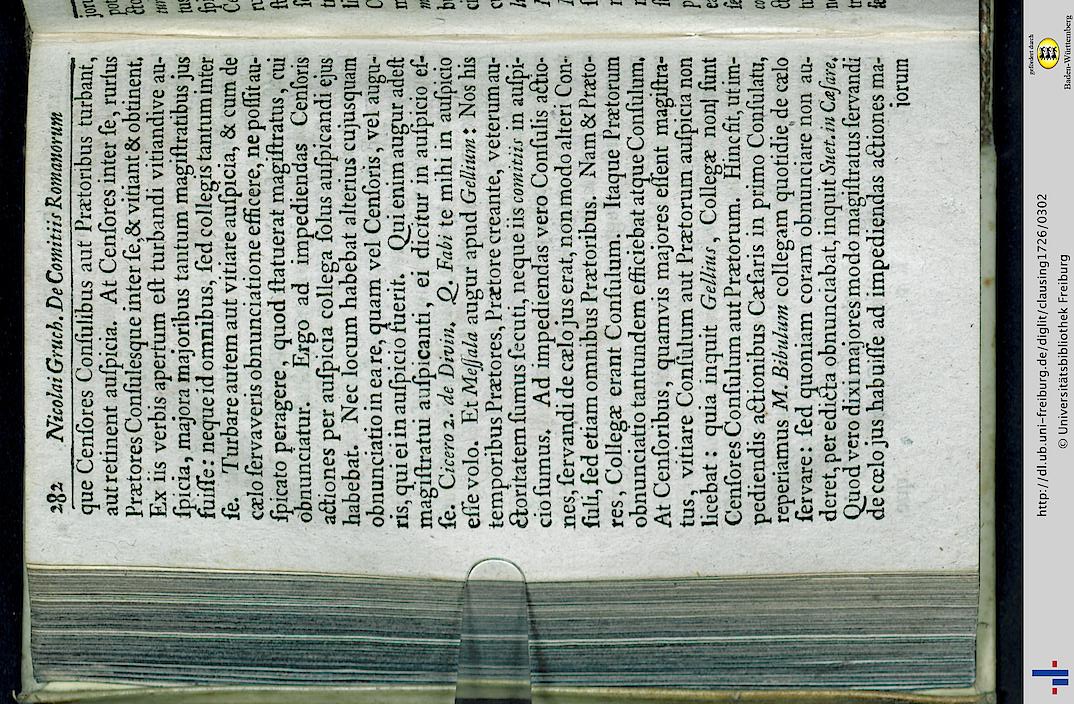 282 Nicolai Gruch. De Comitiis Romanorum
que Cenſores Conſulibus aut Prætoribus turbant,
aut retinent auſpicia. At Cenſores inter ſe, rurſus
Prætores Conſulesque inter ſe, & vitiant & obtinent,
Ex iis verbis apertum eſt turbandi vitiandive au-
ſpicia, majora majoribus tantum magiſtratibus jus
fuiſſe: neque id omnibus, ſed collegis tantum inter
ſe. Turbare autem aut vitiare auſpicia, & cum de
cælo ſervaveris obnunciatione efficere, ne poſſit au-
ſpicato peragere, quod ſtatuerat magiſtratus, cui
obnunciatur. Ergo ad impediendas Cenſoris
actiones per auſpicia collega ſolus auſpicandi ejus
habebat. Nec locum habebat alterius cujusquam
obnunciatio in ea re, quam vel Cenſoris, vel augu-
ris, qui ei in auſpicio fuerit. Qui enim augur adeſt
magiſtratui auſpicanti, ei dicitur in auſpicio eſ-
ſe. Cicero 2. de Divin. Q. Fabi te mihi in auſpicio
eſſe volo. Et Meſſala augur apud Gellium: Nos his
temporibus Prætores, Prætore creante, veterum au-
ctoritatem ſumus ſecuti, neque iis comitiis in auſpi-
cio fumus. Ad impediendas vero Conſulis actio-
nes, ſervandi de cælo jus erat, non modo alteri Con-
ſuli, ſed etiam omnibus Prætoribus. Nam & Præto-
res, Collegæ erant Conſulum. Itaque Prætorum
obnunciatio tantundem efficiebat atque Conſulum,
At Cenſoribus, quamvis majores eſſent magiſtra-
tus, vitiare Conſulum aut Prætorum auſpicia non
licebat: quia inquit Gellius, Collegæ non ſunt
Cenſores Conſulum aut Prætorum. Hinc fit, ut im-
pediendis actionibus Cæſaris in primo Conſulatu,
reperiamus M. Bibulum collegam quotidie de cælo
ſervare: ſed quoniam coram obnunciare non au-
deret, per edicta obnunciabat, inquit Suet. in Cæſare,
Quod vero dixi majores modo magiſtratus ſervandi
de cœlo jus habuiſſe ad impediendas actiones ma-
jorum
http://dl.ub.uni-freiburg.de/diglit/clausing1726/0302
© Universitätsbibliothek Freiburg
gefördert durch
Baden-Württemberg